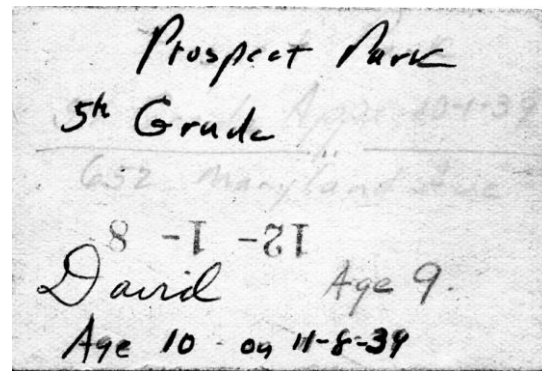 Prospect Park
5th Grade
10-1-39
652 Maryland Ave
12-1-8
David Age 9.
Age 10 - on 11-8-39